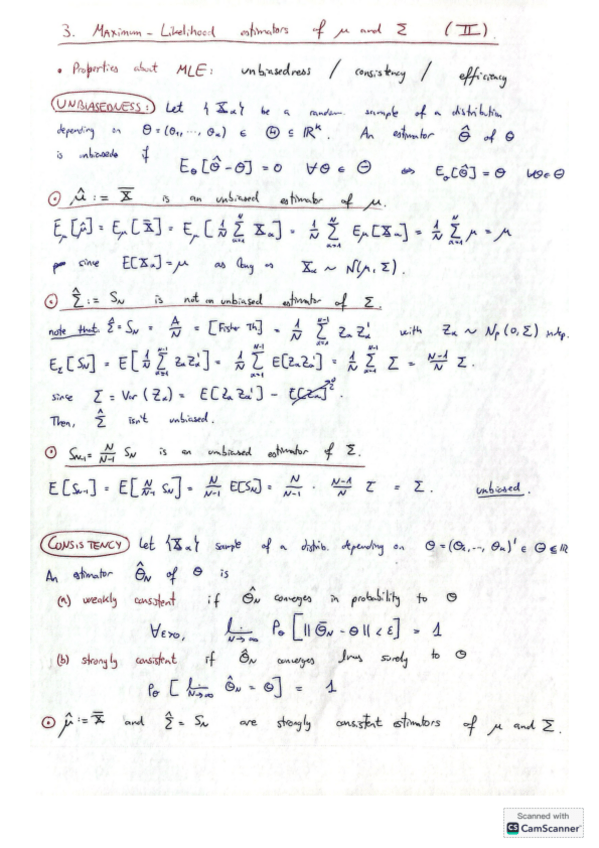 3. Maximum-Likelihood estimators of μ and Σ (II).
• Properties about MLE: unbiasedness / consistency / efficiency
UNBIASEDNESS: Let {X_α} be a random sample of a distribution
depending on Θ = (Θ₁, ..., Θ_k) ∈ Θ ⊆ ℝᵏ. An estimator Θ̂ of Θ
is unbiased if E_Θ[Θ̂ - Θ] = 0 ∀Θ ∈ Θ ⇔ E_Θ[Θ̂] = Θ ∀Θ ∈ Θ
⊙ μ̂ := X̄ is an unbiased estimator of μ.
E_μ[μ̂] = E_μ[X̄] = E_μ[1/N Σ_{α=1}^N X_α] = 1/N Σ_{α=1}^N E_μ[X_α] = 1/N Σ_{α=1}^N μ = μ
since E[X_α] = μ as long as X_α ~ N(μ, Σ).
⊙ Σ̂ := S_N is not an unbiased estimator of Σ
note that Σ̂ = S_N = A/N = [Fisher Th] = 1/N Σ_{α=1}^{N-1} Z_α Z_α' with Z_α ~ N_p(0, Σ) indep.
E_Σ[S_N] = E[1/N Σ_{α=1}^{N-1} Z_α Z_α'] = 1/N Σ_{α=1}^{N-1} E[Z_α Z_α'] = 1/N Σ_{α=1}^{N-1} Σ = N-1/N Σ.
since Σ = Var(Z_α) = E[Z_α Z_α'] - E[Z_α]² 0.
Then, Σ̂ isn't unbiased.
⊙ S_{N-1} = N/N-1 S_N is an unbiased estimator of Σ.
E[S_{N-1}] = E[N/N-1 S_N] = N/N-1 E[S_N] = N/N-1 · N-1/N Σ = Σ. unbiased.
CONSISTENCY Let {X_α} sample of a distrib. depending on Θ = (Θ₁, ..., Θ_k)' ∈ Θ ⊆ ℝ
An estimator Θ̂_N of Θ is
(a) weakly consistent if Θ̂_N converges in probability to Θ
∀ε>0, lim_{N→∞} P_Θ[||Θ̂_N - Θ|| < ε] = 1
(b) strongly consistent if Θ̂_N converges surely to Θ
P_Θ[lim_{N→∞} Θ̂_N = Θ] = 1
⊙ μ̂ := X̄ and Σ̂ = S_N are strongly consistent estimators of μ and Σ.
Scanned with
CS CamScanner